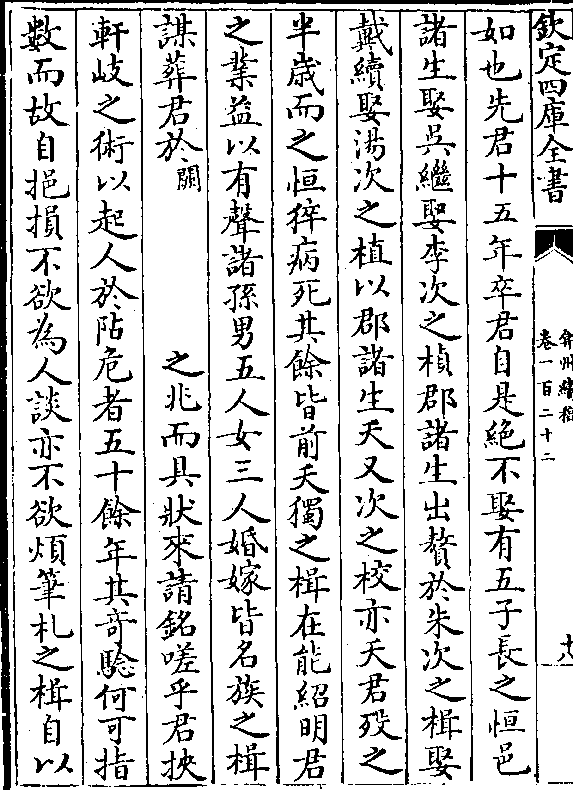 欽定四庫全書
弇州續稿
卷一百二十二
十八
如也先君十五年卒君自是絶不娶有五子長之恒邑
諸生娶吳繼娶李次之楨郡諸生出贅於朱次之楫娶
戴續娶湯次之植以郡諸生夭又次之校亦夭君歿之
半歳而之恒猝病死其餘皆前夭獨之楫在能紹明君
之業益以有聲諸孫男五人女三人婚嫁皆名族之楫
謀葬君於闕之兆而具狀來請銘嗟乎君挾
軒岐之術以起人於阽危者五十餘年其竒騐何可指
數而故自挹損不欲為人談亦不欲煩筆札之楫自以